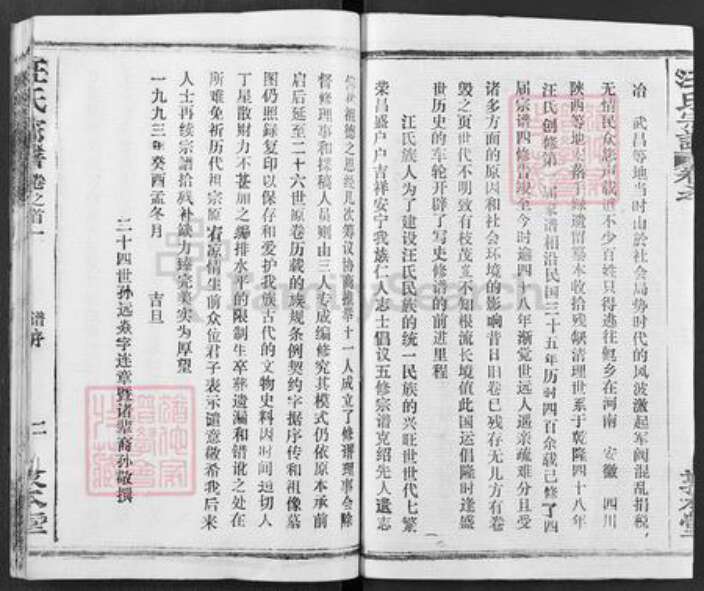 汪氏宗譜 卷之
冶 武昌等地当时由於社会局势时代的风波激起军阀混乱捐税，
无情民众怨声载道不少百姓只得逃往他乡在河南 安徽 四川
陕西等地 落 遗留墓本收拾残缺清理世系于乾隆四十八年
汪氏创修第 届家谱相沿民国三十五年历时四百余载已修了四
届宗谱四修告竣至今时逾四十八年渐觉世远人遥亲疏难分且受
诸多方面的原因和社会环境的影响昔日旧卷已残存无几方有卷
毁之页世代不明致有枝茂 不知根流长境值此国运倡隆时逢盛
世历史的车轮开辟了写史修谱的前进里程
汪氏族人为了建设汪氏民族的统一民族的兴旺世世代七繁
荣昌盛户户吉祥安宁我族仁人志士倡议五修宗谱克绍先人遗志
祖德之恩经几次筹议协商推举十一人成立了修谱理事会除
督修理事和採稿人员则由三人专成编修究其模式仍依原本承前
启后延至二十六世原卷历载的族规条例契约字据序传和祖像墓
图仍照録复印以保存和爱护我族古代的文物史料因时间迫切人
丁星散财力不甚加之编排水平的限制生卒葬遗漏和错讹之处在
所难免祈历代祖宗原宥原情生前众位君子表示谴意敬希我后来
人士再续宗譜拾残补缺力臻完美实为厚望
一九九三年癸酉孟冬月 吉旦
二十四世孙远焱字连章暨诸辈裔孙敬撰
汪氏宗譜 卷之首一
谱序